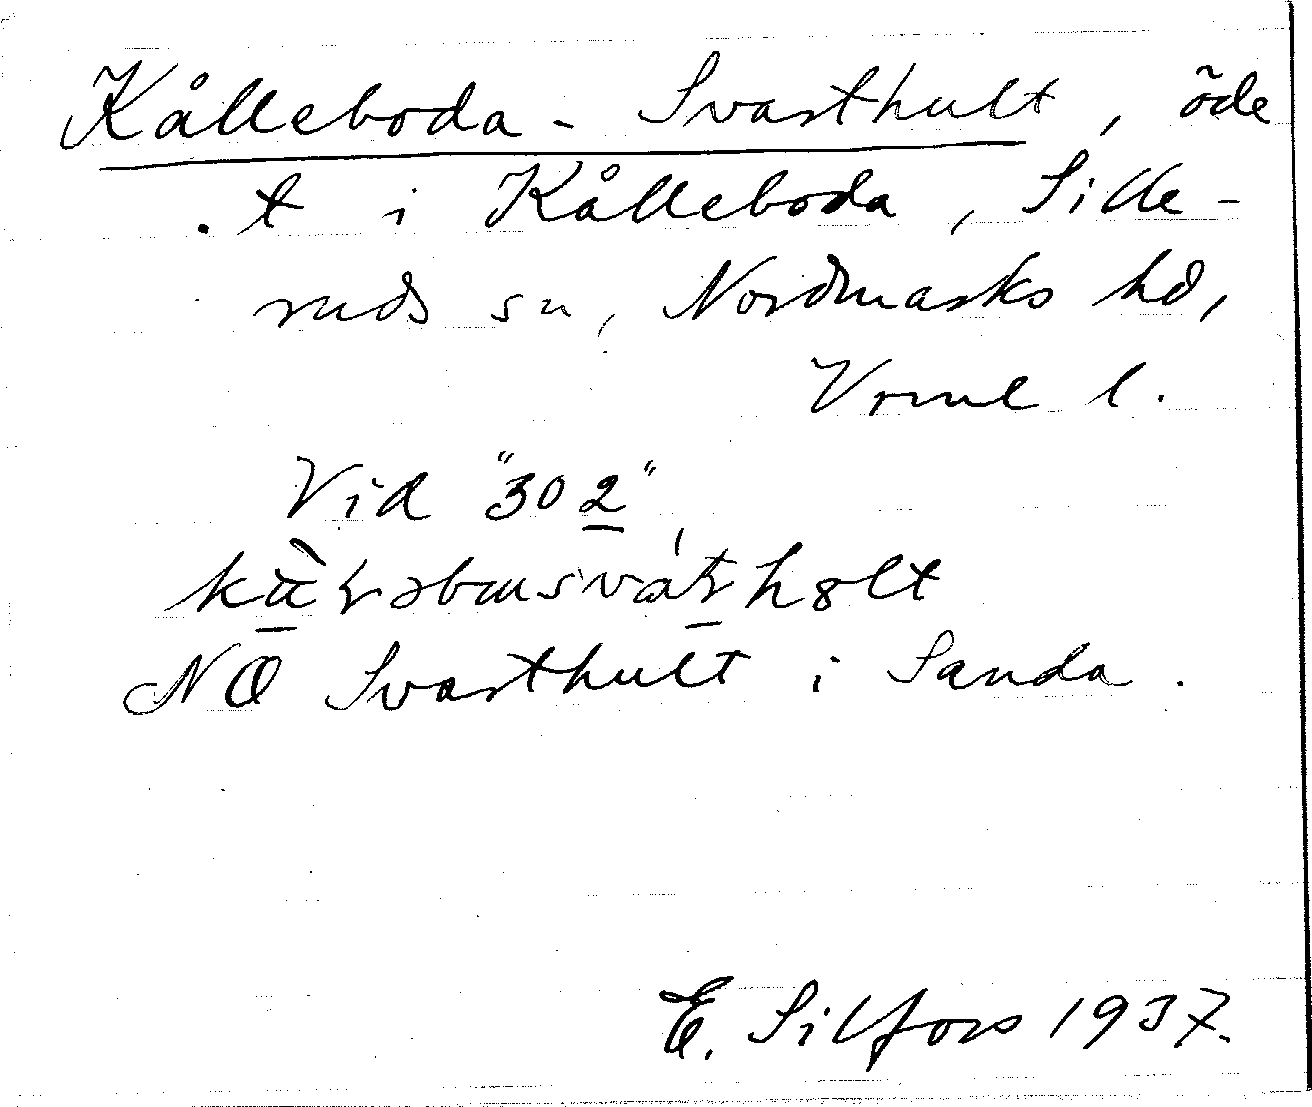 Kålleboda - Svarthult, öde
t i Kålleboda, Sille-
ruds sn, Nordmarks hd,
Vrml l.
Vid "302"
NO Svarthult i Sanda.
E. Silfors 1937.